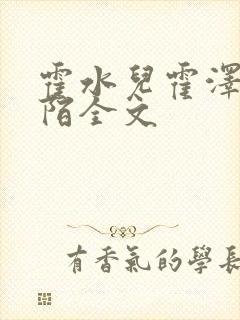 霍水兒霍澤
陌全文
有香氣的學長